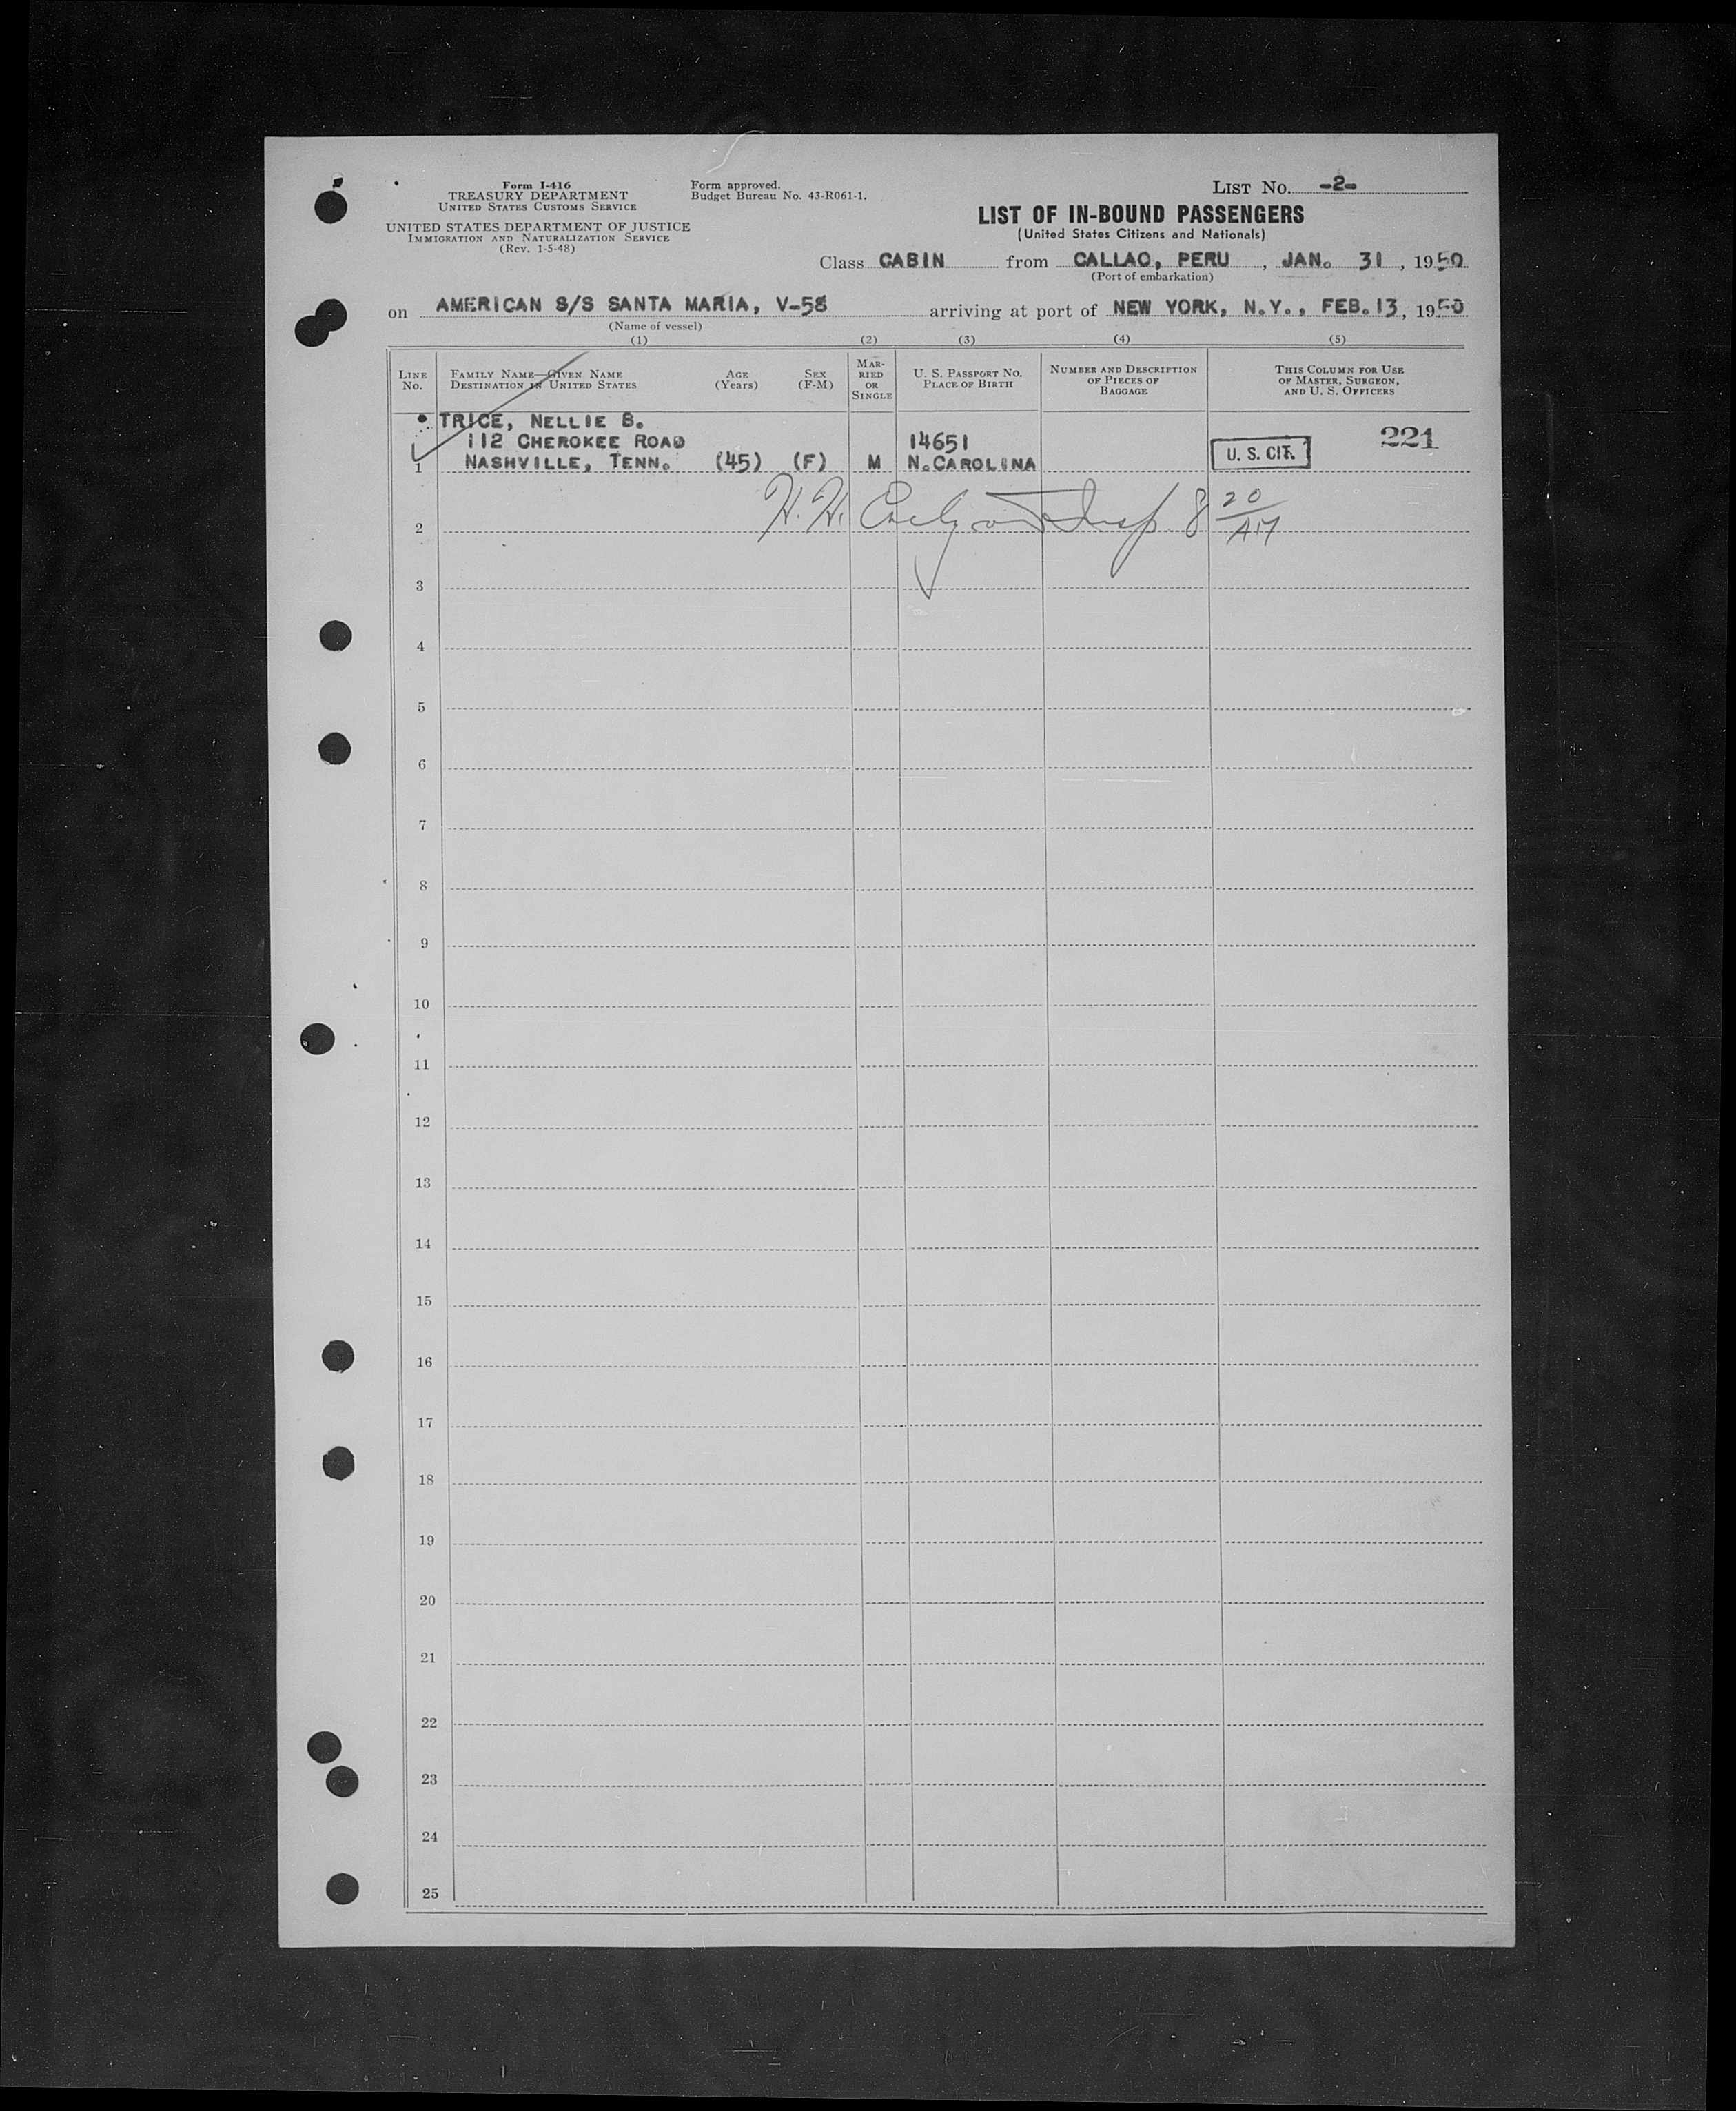 Form I-416
TREASURY DEPARTMENT
UNITED STATES CUSTOMS SERVICE
UNITED STATES DEPARTMENT OF JUSTICE
IMMIGRATION AND NATURALIZATION SERVICE
(Rev. 1-5-48)
Form approved.
Budget Bureau No. 43-R061-1.
LIST NO. -2-
LIST OF IN-BOUND PASSENGERS
(United States Citizens and Nationals)
Class CABIN from CALLAO, PERU, JAN. 31, 1950
(Port of embarkation)
on AMERICAN S/S SANTA MARIA, V-58 arriving at port of NEW YORK, N.Y., FEB. 13, 1950
(Name of vessel)
(1) (2) (3) (4) (5)
LINE NO.
FAMILY NAME—GIVEN NAME
DESTINATION IN UNITED STATES
AGE (Years)
SEX (F-M)
MARRIED OR SINGLE
U. S. PASSPORT NO.
PLACE OF BIRTH
NUMBER AND DESCRIPTION
OF PIECES OF
BAGGAGE
THIS COLUMN FOR USE
OF MASTER, SURGEON,
AND U. S. OFFICERS
TRICE, NELLIE B.
112 CHEROKEE ROAD 14651 221
1 NASHVILLE, TENN. (45) (F) M N.CAROLINA U. S. CIT.
H. H. Insp. 8 20/AM
2
3
4
5
6
7
8
9
10
11
12
13
14
15
16
17
18
19
20
21
22
23
24
25